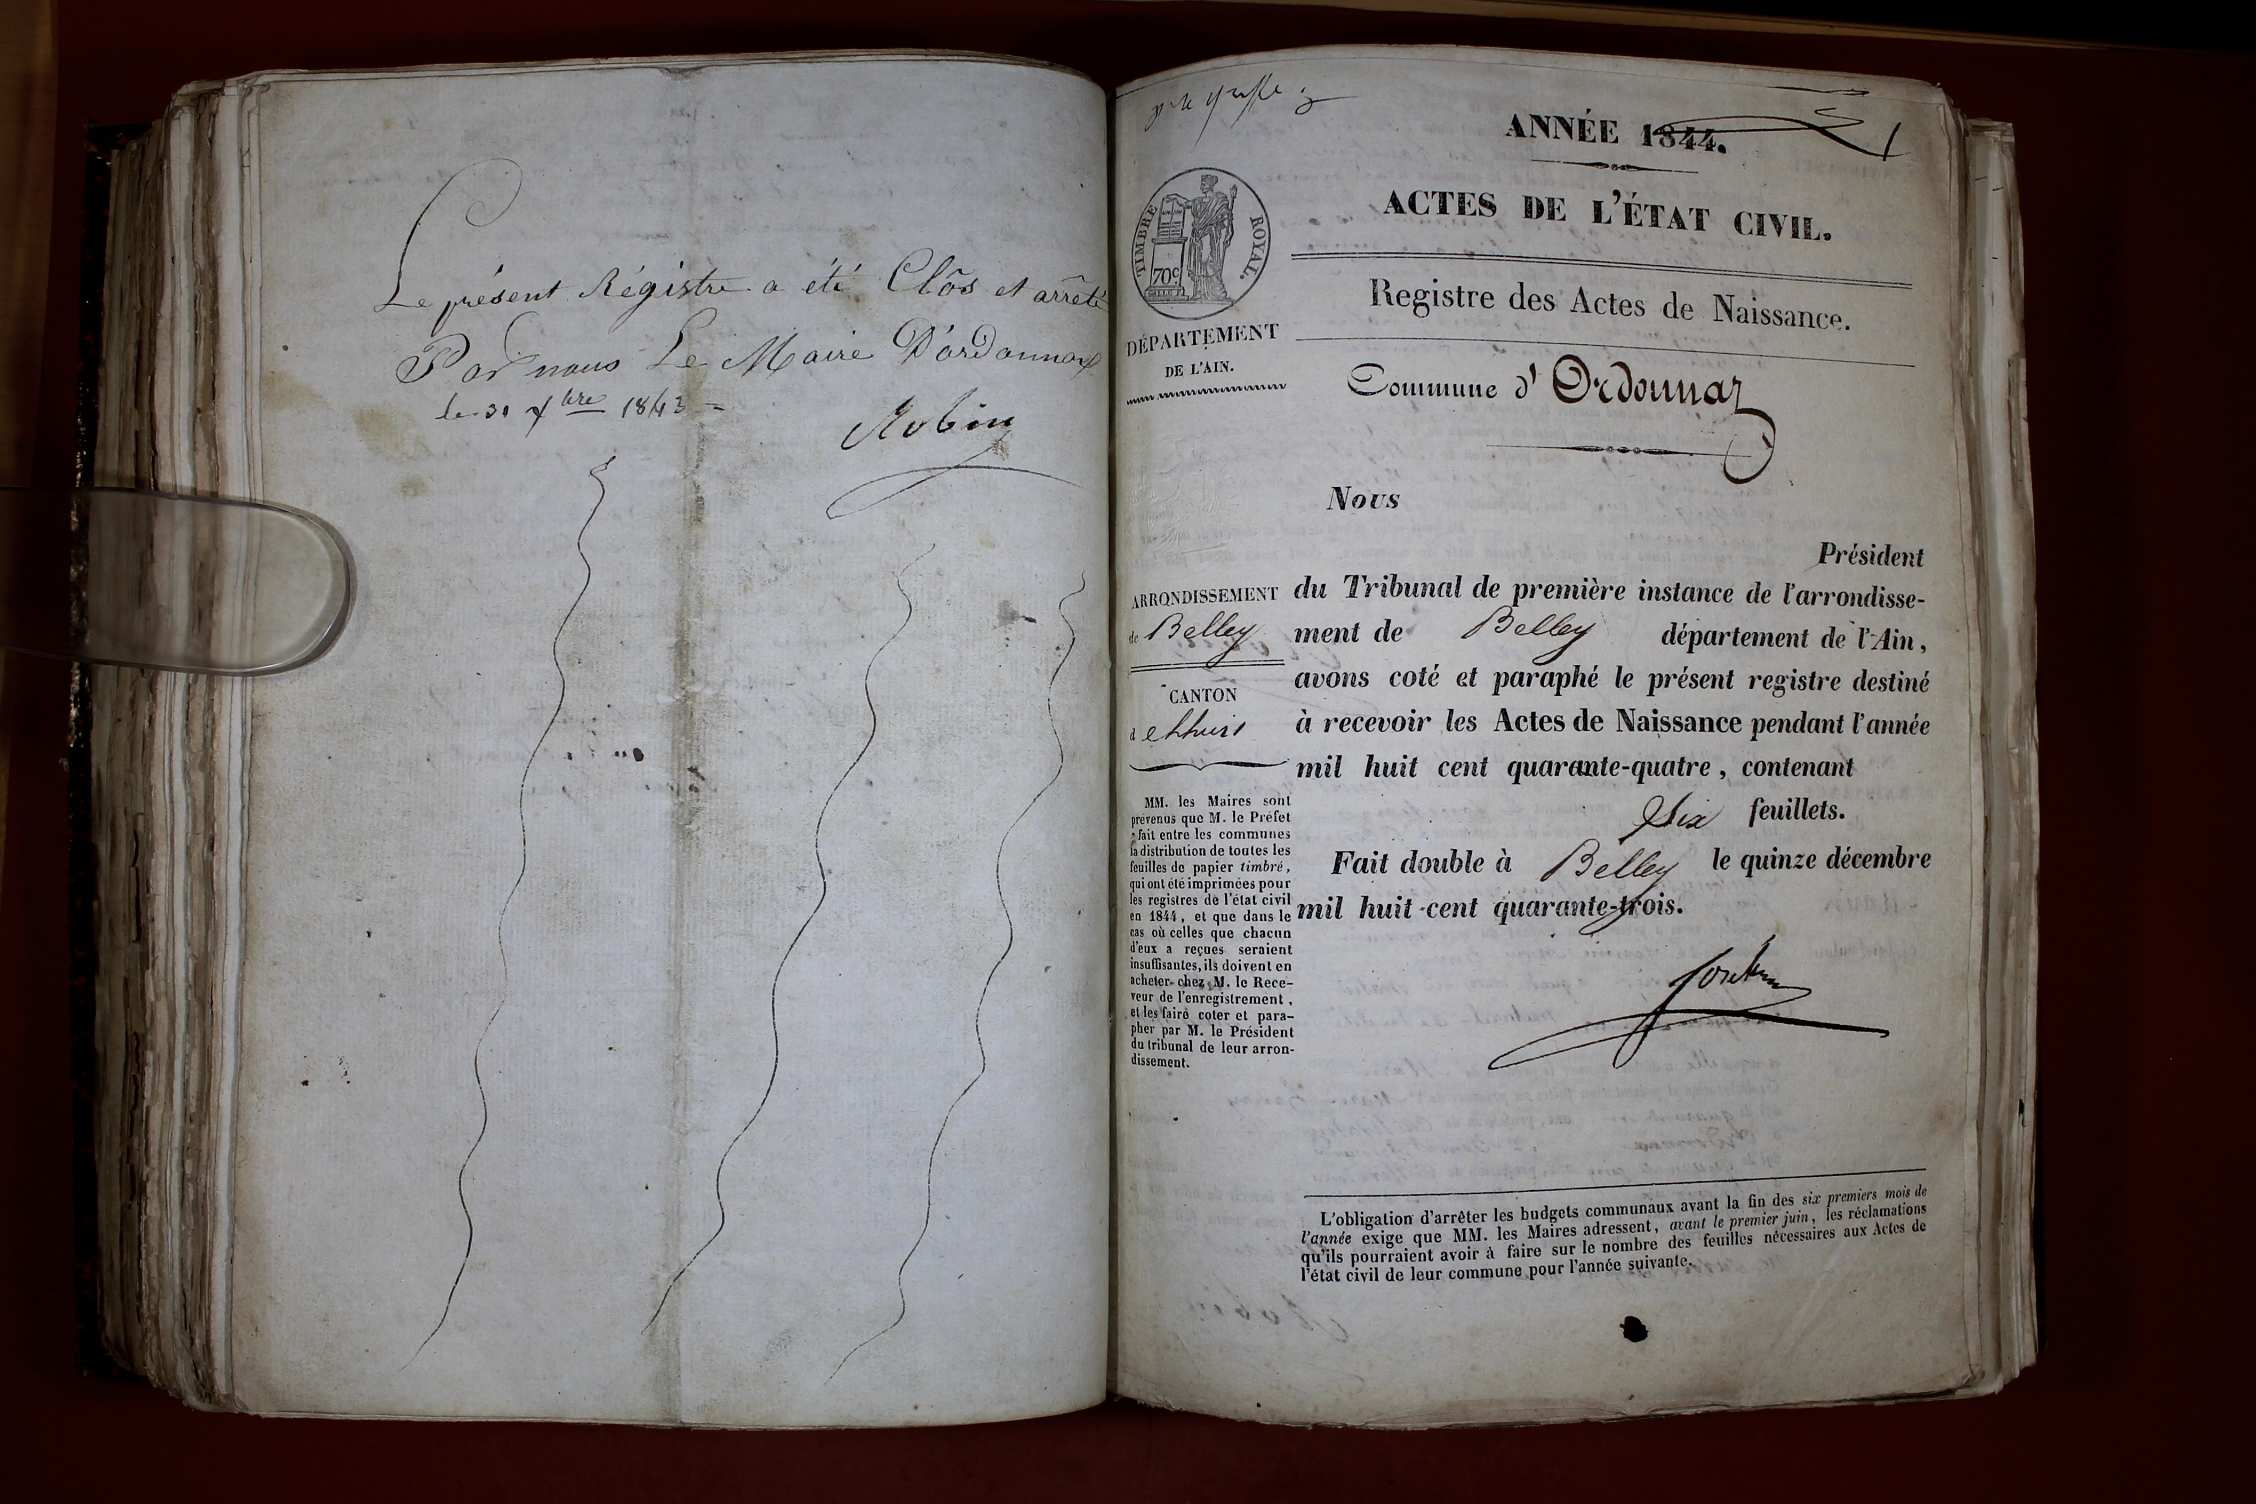 Le présent Régistre a été Clôs et arrêté
Par nous Le Maire D'ordonnax
le 31 Xbre 1843
Robin
pr le greffe
ANNÉE 1844.
1
ACTES DE L'ÉTAT CIVIL.
TIMBRE ROYAL.
70c
Registre des Actes de Naissance.
DÉPARTEMENT
DE L'AIN.
Commune d' Ordonnaz
Nous
Président
ARRONDISSEMENT
de Belley
CANTON
du Tribunal de première instance de l'arrondisse-
ment de Belley département de l'Ain,
avons coté et paraphé le présent registre destiné
à recevoir les Actes de Naissance pendant l'année
mil huit cent quarante-quatre, contenant
Six feuillets.
Fait double à Belley le quinze décembre
mil huit cent quarante-trois.
MM. les Maires sont
prévenus que M. le Préfet
fait entre les communes
la distribution de toutes les
feuilles de papier timbré,
qui ont été imprimées pour
les registres de l'état civil
en 1844, et que dans le
cas où celles que chacun
d'eux a reçues seraient
insuffisantes, ils doivent en
acheter chez M. le Rece-
veur de l'enregistrement,
et les faire coter et para-
pher par M. le Président
du tribunal de leur arron-
dissement.
L'obligation d'arrêter les budgets communaux avant la fin des six premiers mois de
l'année exige que MM. les Maires adressent, avant le premier juin, les réclamations
qu'ils pourraient avoir à faire sur le nombre des feuilles nécessaires aux Actes de
l'état civil de leur commune pour l'année suivante.